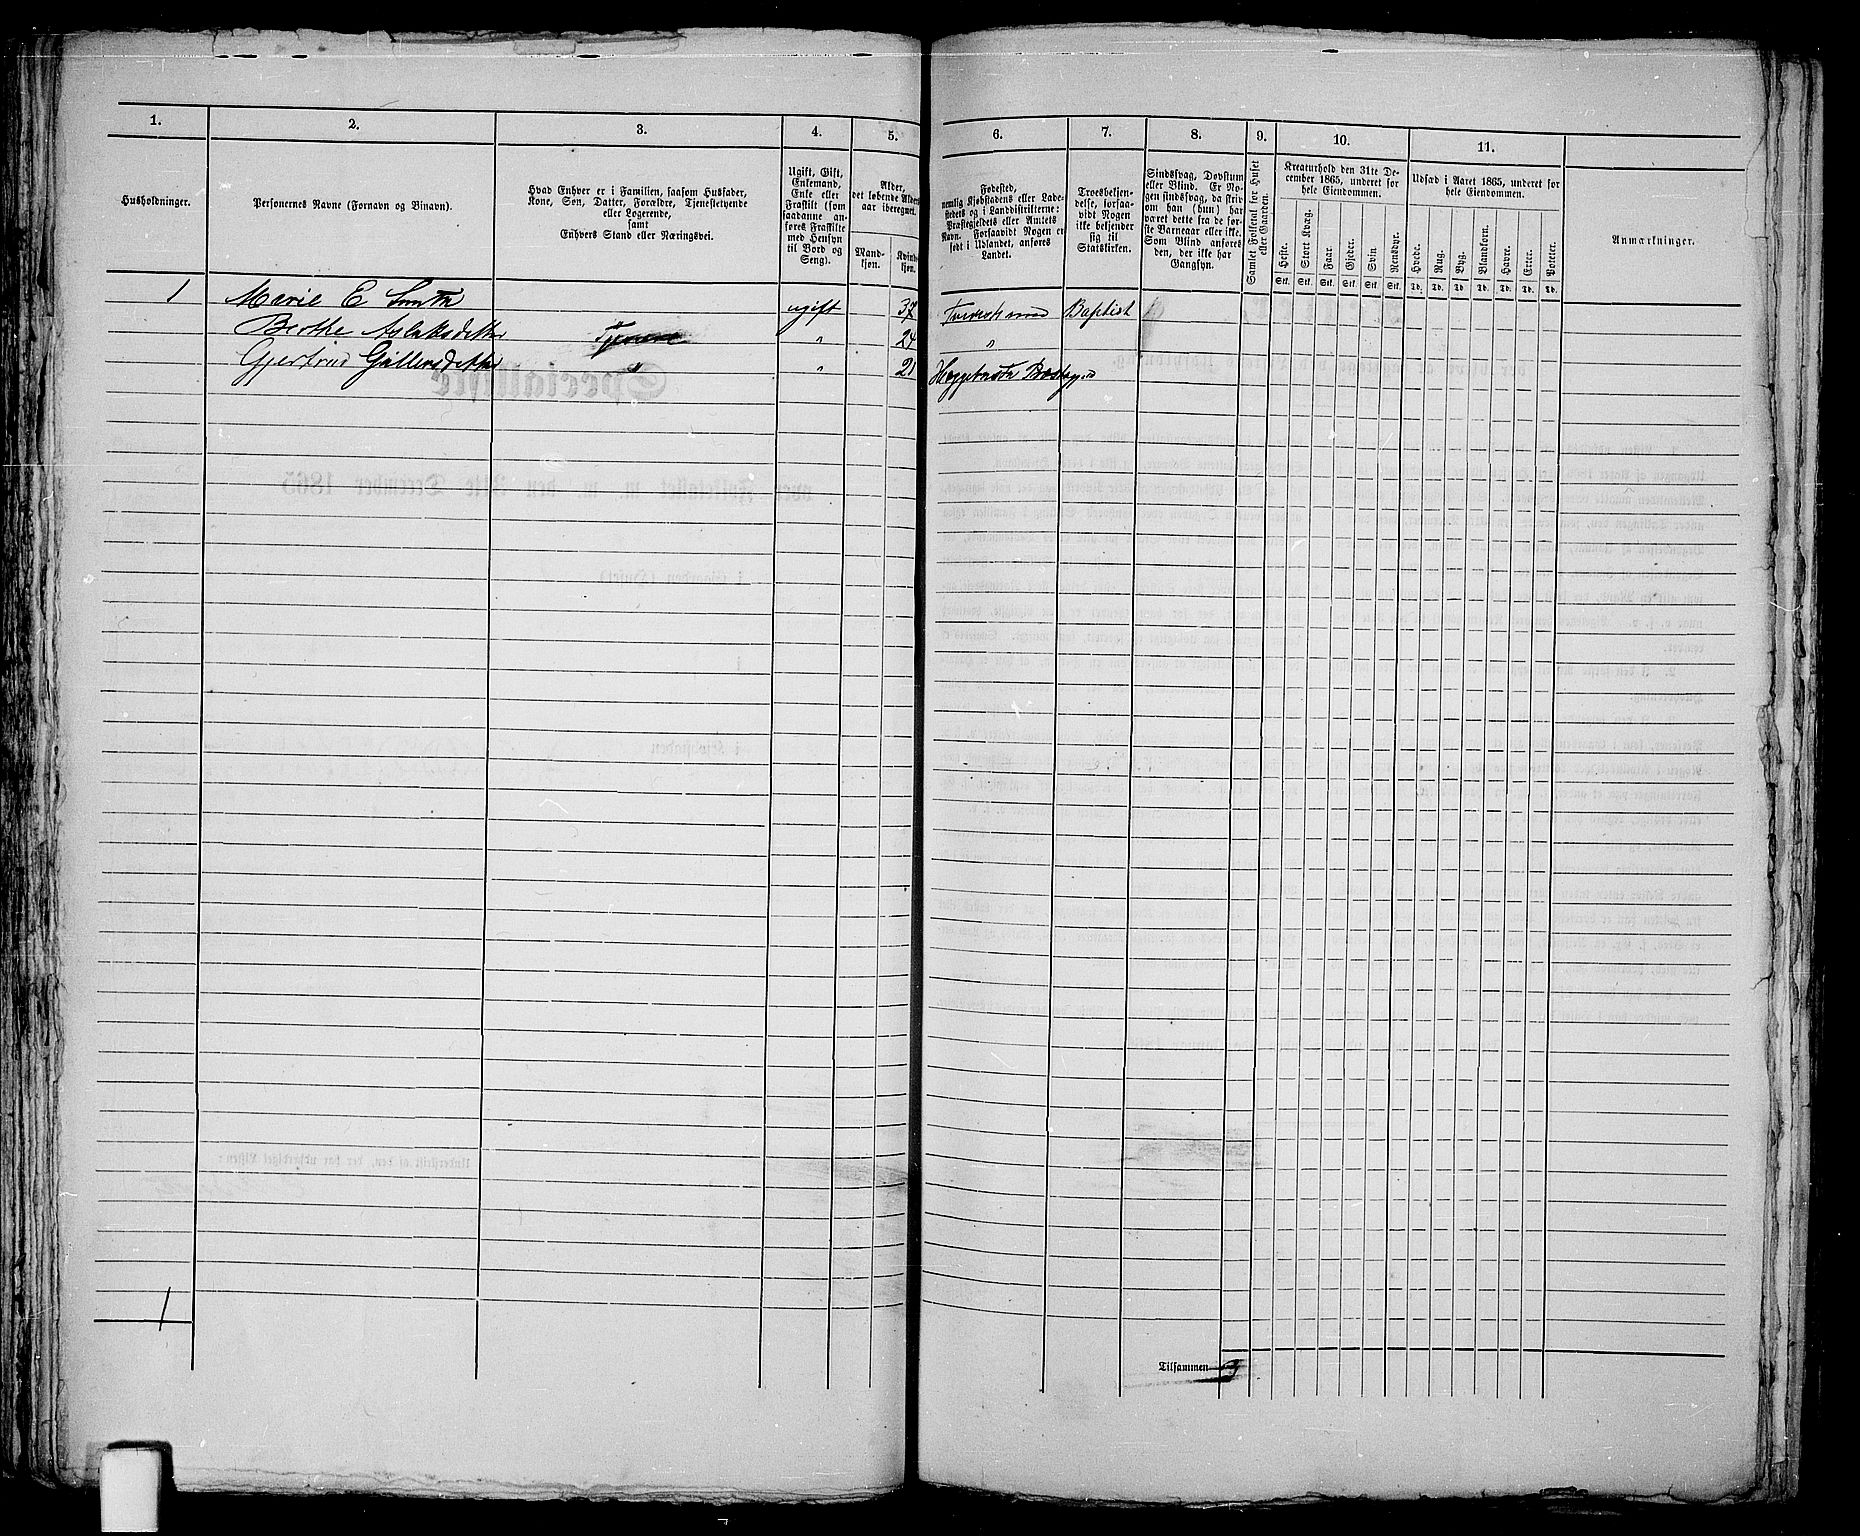 1. 2. 3. 4. 5. 6. 7. 8. 9. 10. 11.
Husholdninger.
Personernes Navne (Fornavn og Binavn).
Hvad Enhver er i Familien, saasom Husfader,
Kone, Søn, Datter, Forældre, Tjenestetyende
eller Logerende,
samt
Enhvers Stand eller Næringsvei.
Ugift, Gift,
Enkemand,
Enke eller
Fraskilt (som
saadanne an-
føres Fraskilte
med Hensyn
til Bord og
Seng).
Alder,
det løbende Alders-
aar iberegnet.
Mand-
kjøn.
Kvinde-
kjøn.
Fødested,
nemlig Kjøbstadens eller Lade-
stedets og i Landdistrikterne:
Præstegjeldets eller Amtets
Navn. Forsaavidt Nogen er
født i Udlandet, anføres
Landet.
Troesbekjen-
delse, forsaa-
vidt Nogen
ikke bekjender
sig til
Statskirken.
Sindssvag, Døvstum
eller Blind. Er No-
gen sindssvag, da skriv
om han (hun) har
været dette fra de før-
ste Barneaar eller ikke.
Som Blind anføres
den, der ikke har
Gangsyn.
Samlet Folketal for Huset
eller Gaarden.
Kreaturhold den 31te De-
cember 1865, underet for
hele Eiendommen.
Heste. Stort Kvæg. Faar. Gjeder. Svin Rensdyr.
Stk. Stk. Stk. Stk. Stk. Stk.
Udsæd i Aaret 1865, underet for
hele Eiendommen.
Hvede. Rug. Byg. Blandkorn. Havre. Erter. Poteter.
Td. Td. Td. Td. Td. Td. Td.
Anmærkninger.
1 Marie E Smith ugift 37 Baptist
Berthe Aslaksdatter Tjenere " 24 "
Gjertrud " " 21
1
Tilsammen 3